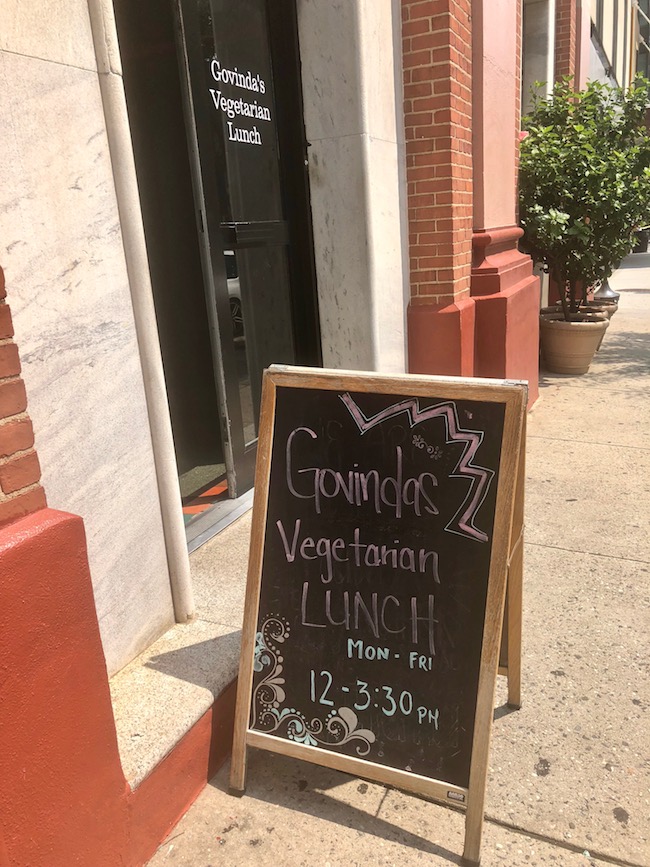 Govinda's
Vegetarian
Lunch
Govindas
Vegetarian
LUNCH
MON - FRI
12 - 3:30 PM